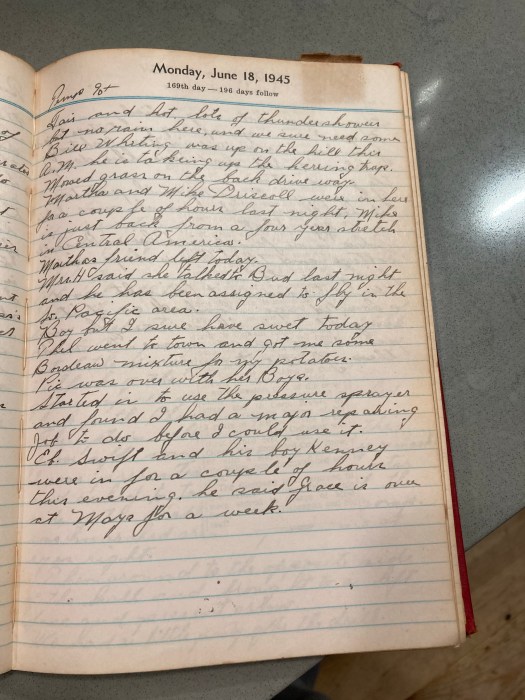 Monday, June 18, 1945
169th day — 196 days follow
Temp
Fair and hot lots of thundershower
but no rain here, and we sure need some
Bill Whiting was up on the hill this
A.M. he is taking up the herring trap.
Mowed grass on the back drive way.
Martha and Mike Driscoll were in here
for a couple of hours last night. Mike
is just back from a four year stretch
in Central America.
Marthas friend left today.
Mrs. H said she talked to Bud last night
and he has been assigned to fly in the
So. Pacific area.
Boy but I sure have swet today
Phil went to town and got me some
Bordeau mixture for my potatoes.
Pic was over with her Boys.
Started in to use the pressure sprayer
and found I had a major repairing
job to do before I could use it.
Eb. Swift and his boy Kenney
were in for a couple of hours
this evening. he said Grace is over
at Mays for a week.